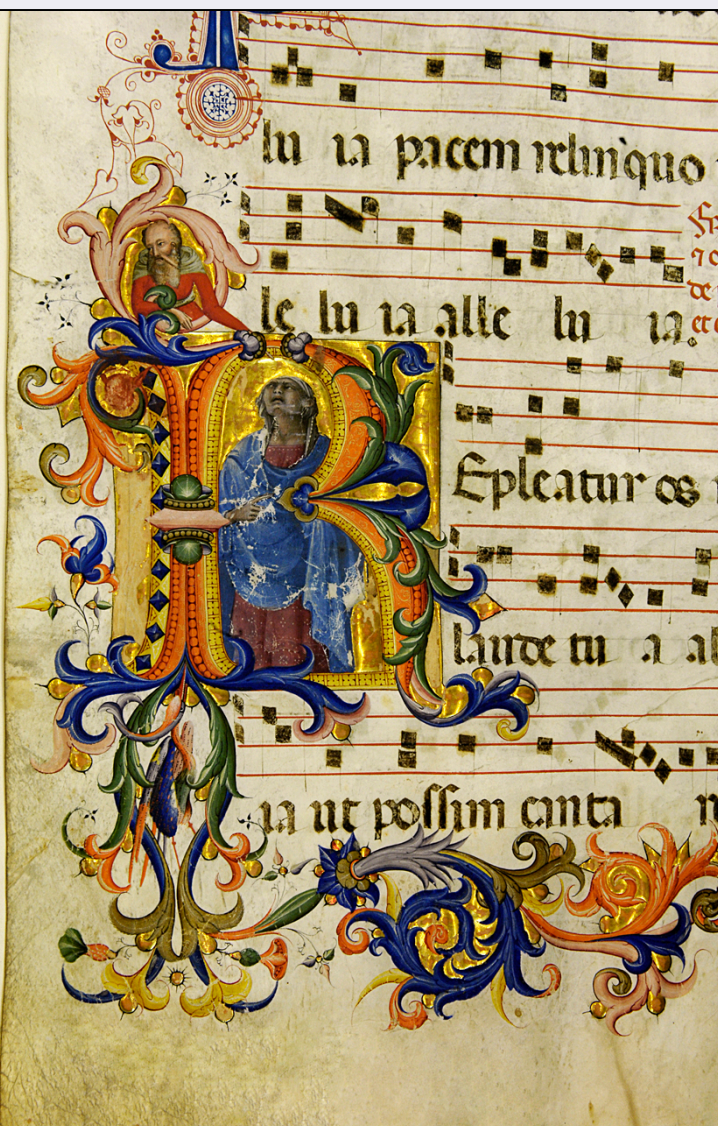 lu ia pacem relinquo
le lu ia alle lu ia.
REpleatur os
laude tu a al
ia ut possim canta